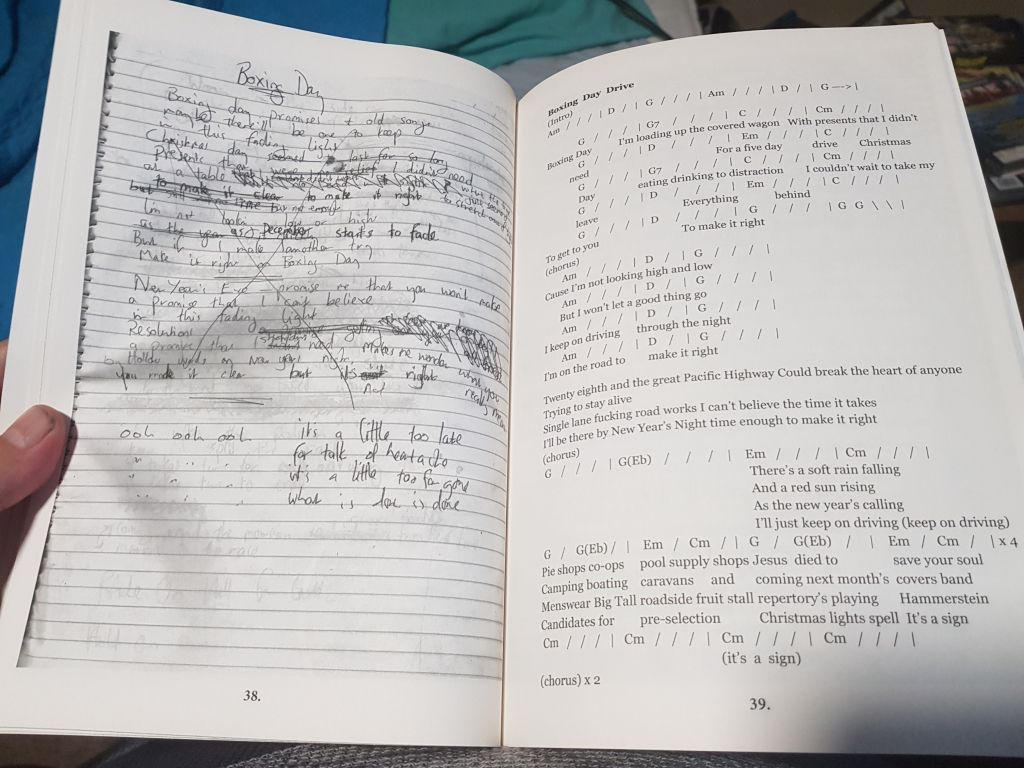 Boxing Day
Boxing day promises + old songs
maybe there'll be one to keep
in this fading light
Christmas day seemed to last for so long
Presents they were didn't need
on a table
to make it clear to make it right
but not enough
I'm not looking low or high
as the year as December starts to fade
But if I make another try
Make it right on Boxing Day
New Year's Eve promise me that you won't make
a promise that I can't believe
in this fading light
Resolutions
a promise that I need makes me wonder what you really mean
Hollow words on New Years night
by you made it clear but it's not right
ooh ooh ooh its a little too late
" " .. .. for talk of heartache
" .. .. it's a little too far gone
" .. .. .. what is done is done
38.
Boxing Day Drive
(Intro)
Am / / / / | D / | G / / / / | Am / / / | D / | G —> |
G / / / / | G7 / / / / | C / / / | Cm / / / / |
Boxing Day I'm loading up the covered wagon With presents that I didn't
G / / / / | D / / / / | Em / / / | C / / / / |
need For a five day drive Christmas
G / / / / | G7 / / / / | C / / / / | Cm / / / / |
Day eating drinking to distraction I couldn't wait to take my
G / / / / | D / / / / | Em / / / | C / / / / |
leave Everything behind
G / / / / | D / / / / | G / / / | G G \ \ |
To get to you To make it right
(chorus)
Am / / / / | D / | G / / / / |
Cause I'm not looking high and low
Am / / / / | D / | G / / / / |
But I won't let a good thing go
Am / / / / | D / | G / / / / |
I keep on driving through the night
Am / / / / | D / | G / / / / |
I'm on the road to make it right
Twenty eighth and the great Pacific Highway Could break the heart of anyone
Trying to stay alive
Single lane fucking road works I can't believe the time it takes
I'll be there by New Year's Night time enough to make it right
(chorus)
G / / / | G(Eb) / / / | Em / / / / | Cm / / / / |
There's a soft rain falling
And a red sun rising
As the new year's calling
I'll just keep on driving (keep on driving)
G / G(Eb) / | Em / Cm / | G / G(Eb) / | Em / Cm / | x 4
Pie shops co-ops pool supply shops Jesus died to save your soul
Camping boating caravans and coming next month's covers band
Menswear Big Tall roadside fruit stall repertory's playing Hammerstein
Candidates for pre-selection Christmas lights spell It's a sign
Cm / / / / | Cm / / / / | Cm / / / / | Cm / / / / |
(it's a sign)
(chorus) x 2
39.